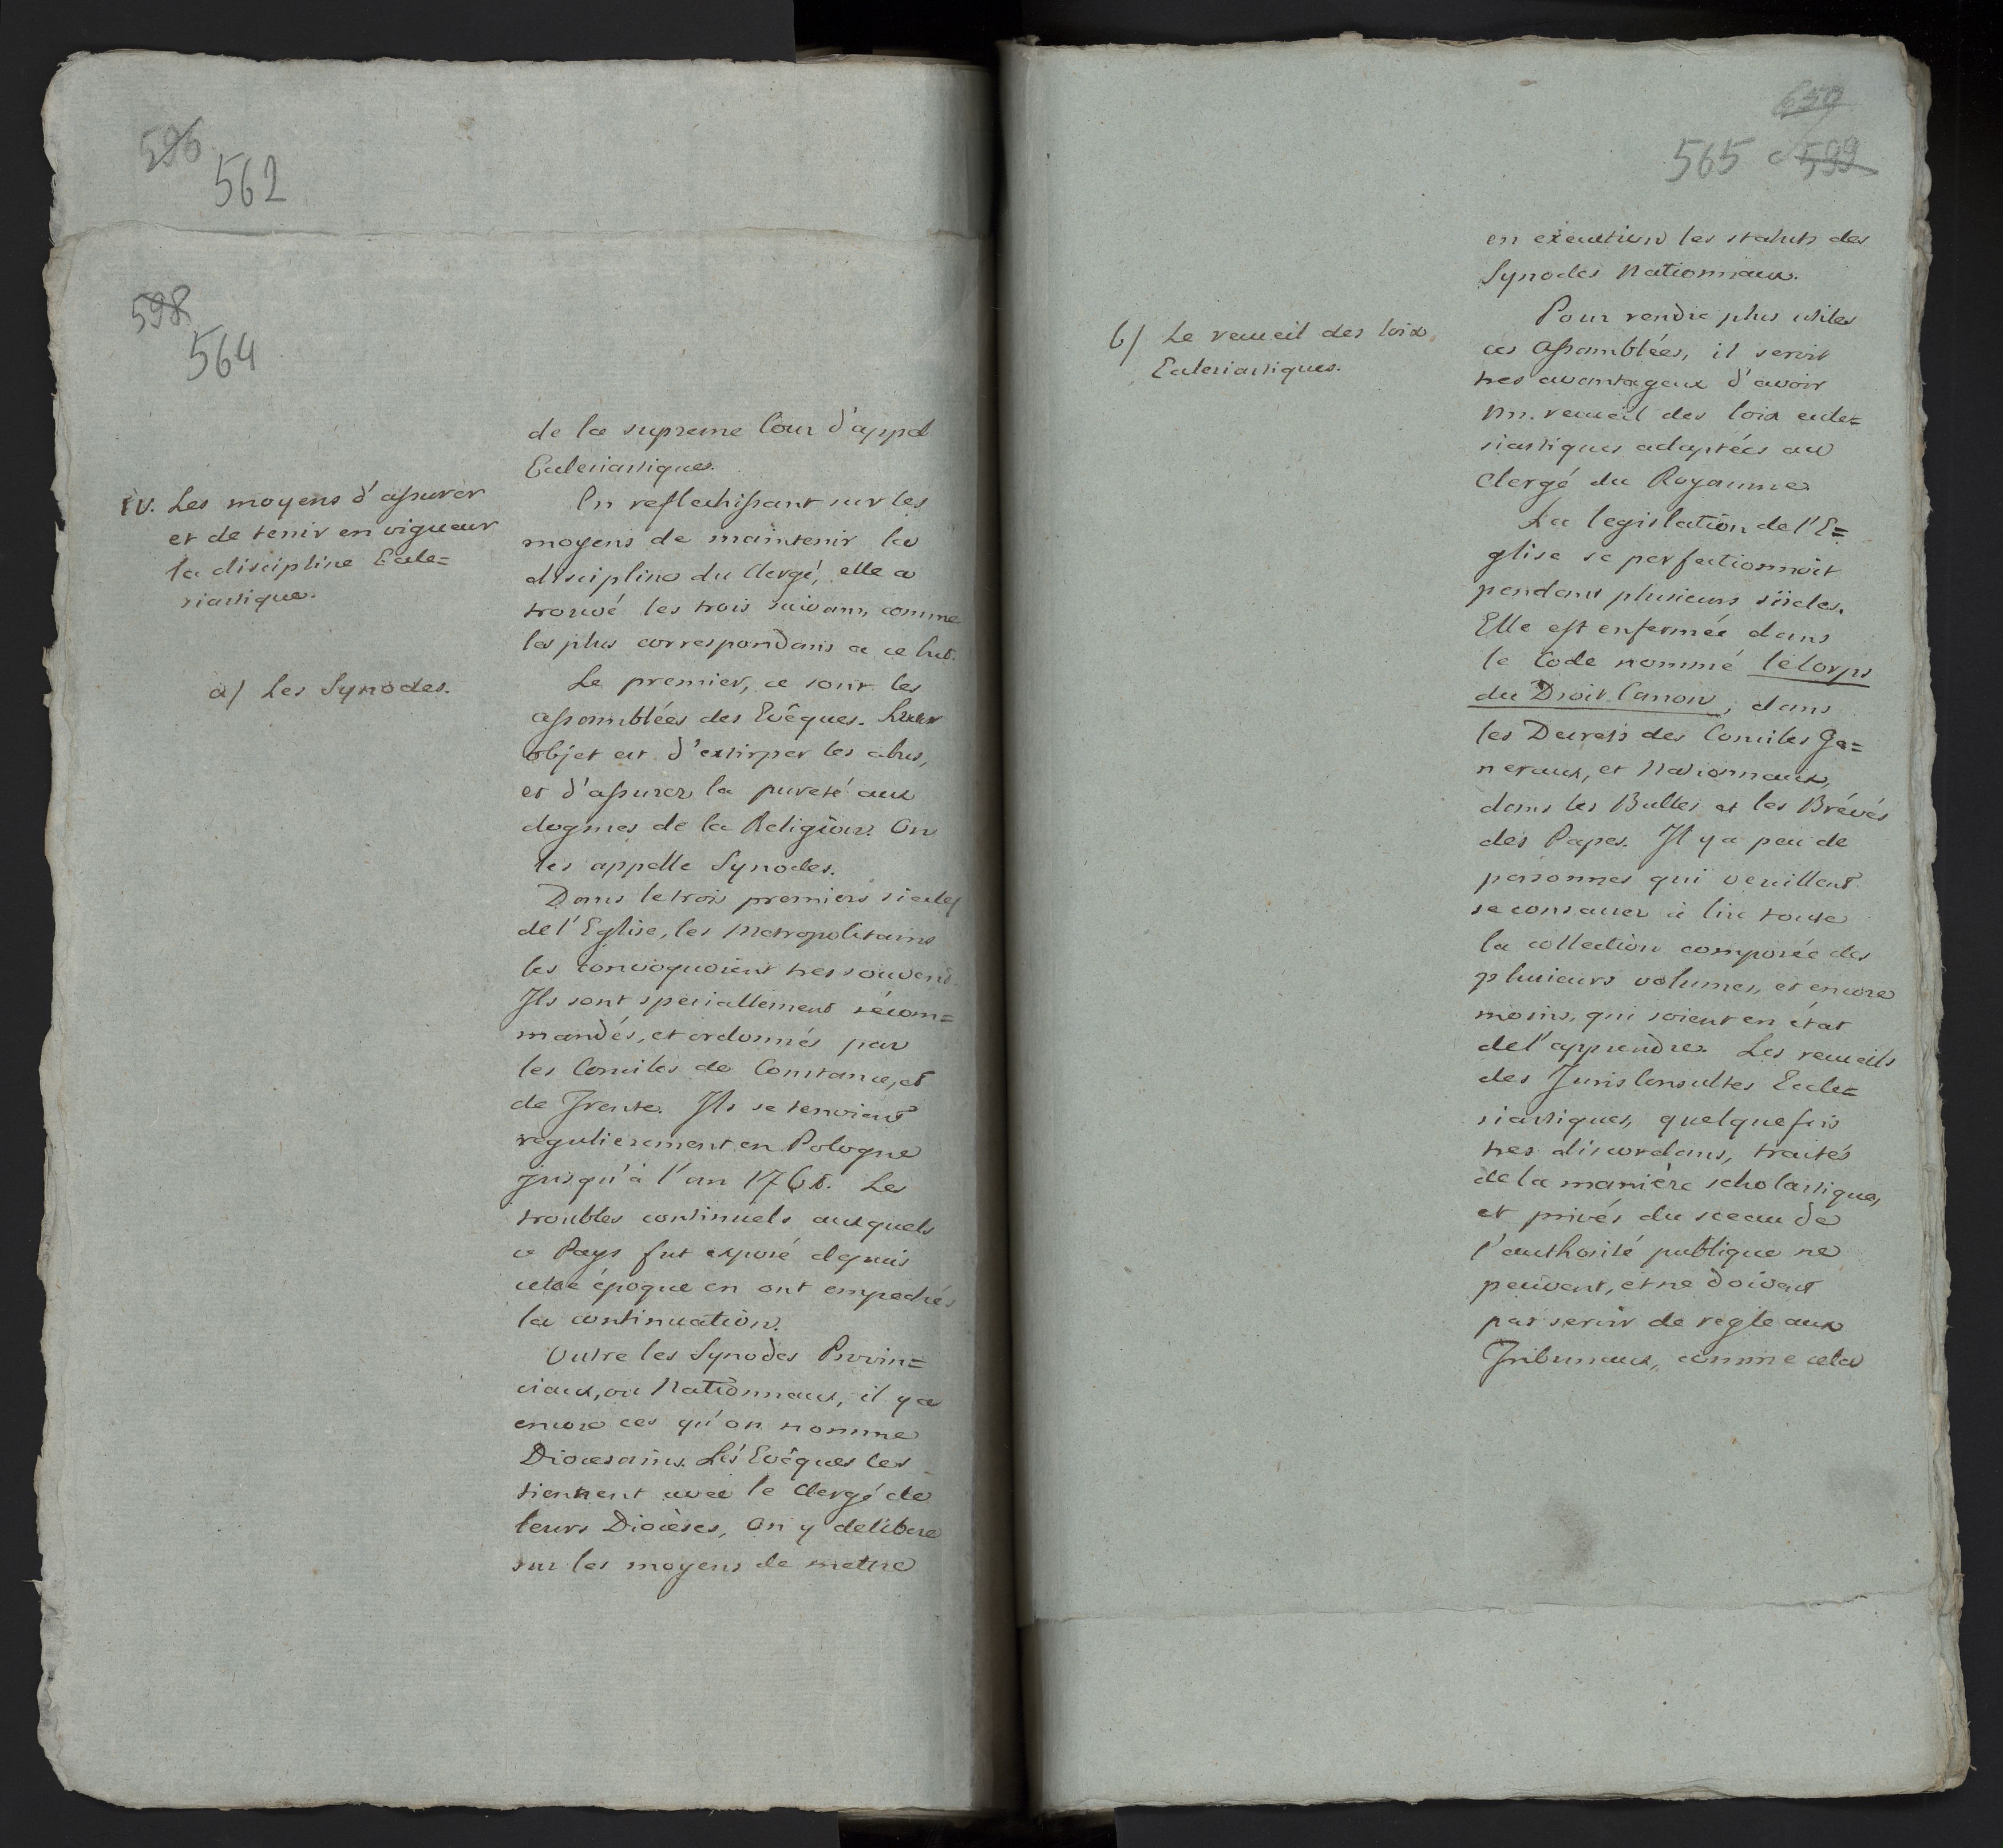 596
562
598
564
de la supreme Cour d'appel
Eclesiastique.
IV. Les moyens d'assurer
et de tenir en vigueur
la discipline Ecle=
siastique.
En reflechissant sur les
moyens de maintenir la
discipline du Clergé, elle a
trouvé les trois suivans, comme
les plus correspondans a ce but.
a) Les Synodes.
Le premier, ce sont les
assamblées des Evêques. Leur
objet est d'extirper les abus,
et d'assurer la pureté aux
dogmes de la Religion. On
les appelle Synodes.
Dans le trois premiers siecles
de l'Eglise, les Metropolitains
les convoquoient tres souvent.
Ils sont speciallement récom=
mandés, et ordonnés par
les Conciles de Constance, et
de Trente. Ils se tenoient
regulierement en Pologne
jusqu'à l'an
Les
troubles continuels auxquels
ce Pays fut exposé depuis
cette époque en ont empechés
la continuation.
Outre les Synodes Provin=
ciaux, ou Nationnaux, il y a
encore ces qu'on nomme
Diocesains. Les Evêques les
tiennent avec le Clergé de
leurs Diocèses, On y delibere
sur les moyens de mettre
650
565
599
en execution les statuts des
Synodes Nationnaux.
b) Le recueil des loix
Eclesiastiques.
Pour rendre plus utiles
ces Assamblées, il seroit
tres avantageux d'avoir
un recueil des loix ecle=
siastiques adaptées au
Clergé du Royaume.
La legislation de l'E=
glise se perfectionnoit
pendant plusieurs siècles.
Elle est enfermée dans
le Code nommé le Corps
du Droit Canon, dans
les Decrets des Conciles Ge=
neraux, et Nationnaux,
dans les Bulles et les Brévés
des Papes. Il y a peu de
personnes qui veuillent
se consacrer à lire toute
la collection composée des
plusieurs volumes, et encore
moins, qui soient en état
de l'apprendre. Les recueils
des Juris Consultes Eccle=
siastiques, quelquefois
tres discordans, traités
de la manière scholastique,
et privés du sceau de
l'authorité publique ne
peuvent, et ne doivent
pas servir de regle aux
Tribunaux, comme cela